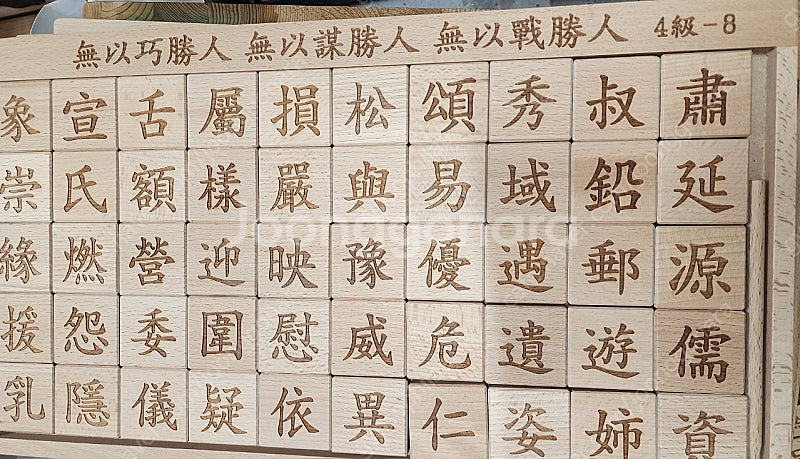 無以巧勝人 無以謀勝人 無以戰勝人 4級-8
象 宣 舌 屬 損 松 頌 秀 叔 肅
崇 氏 額 樣 嚴 與 易 域 鉛 延
緣 燃 營 迎 映 豫 優 遇 郵 源
援 怨 委 圍 慰 威 危 遺 遊 儒
乳 隱 儀 疑 依 異 仁 姿 姉 資